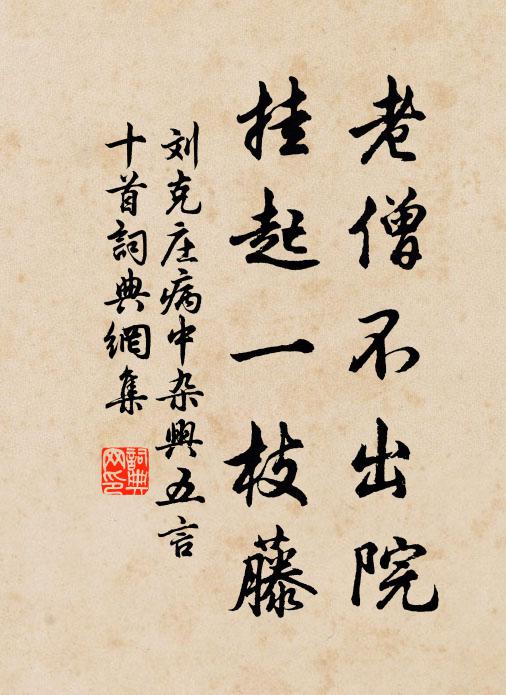 老僧不出院
挂起一枝藤
刘克庄病中杂興五言
十首詞典網集
詞典
网印